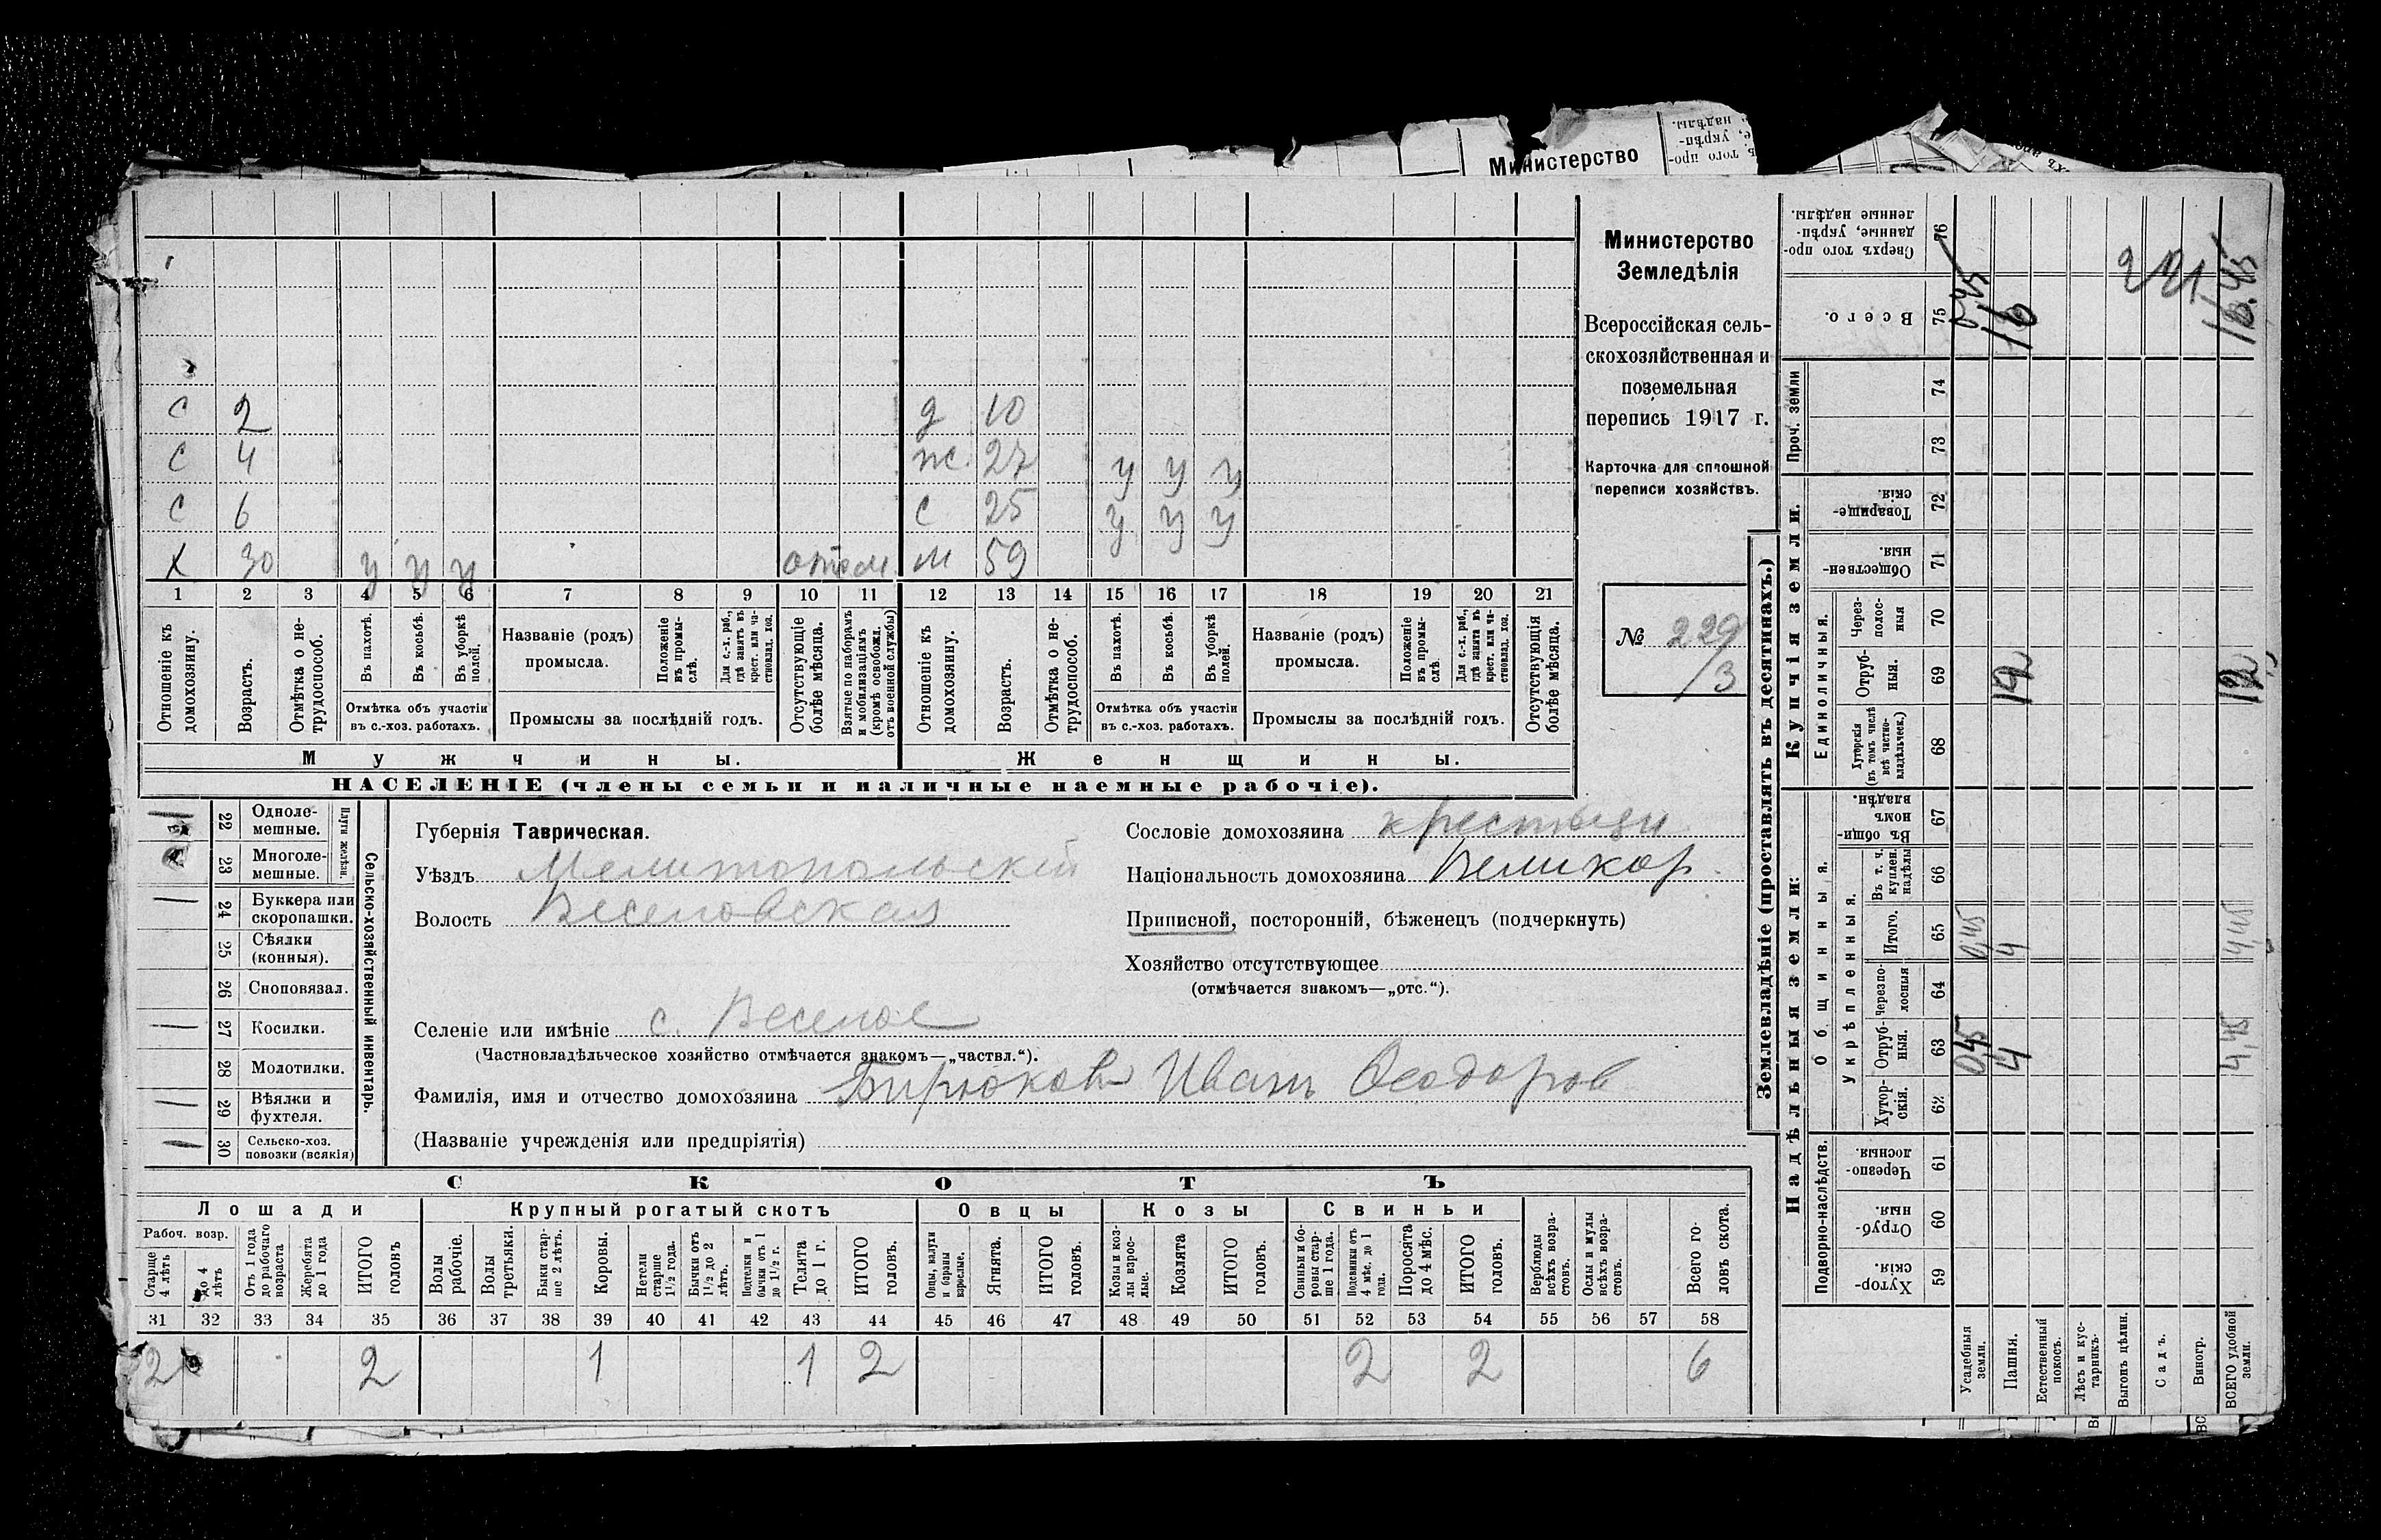 Министерство
Министерство
Земледѣлія
Всероссійская сель-
скохозяйственная и
поземельная
перепись 1917 г.
Карточка для сплошной
переписи хозяйствъ.
№ 229
/3
С 2 д 10
С 4 ж. 27 у у у
С 6 с 25 у у у
Х 30 у у у м 59
1 2 3 4 5 6 7 8 9 10 11 12 13 14 15 16 17 18 19 20 21
Отношеніе къ домохозяину.
Возрастъ.
Отмѣтка о не-трудоспособ.
Въ пахотѣ.
Въ косьбѣ.
Въ уборкѣ полей.
Отмѣтка объ участіи въ с.-хоз. работахъ.
Названіе (родъ) промысла.
Положеніе въ промы-слѣ.
Для с.-х. раб., гдѣ занятъ въ крест. или ча-стновлад. хоз.
Промыслы за послѣдній годъ.
Отсутствующіе болѣе мѣсяца.
Взятые по наборамъ и мобилизаціямъ (кромѣ освобожд. отъ военной службы)
Отношеніе къ домохозяину.
Возрастъ.
Отмѣтка о не-трудоспособ.
Въ пахотѣ.
Въ косьбѣ.
Въ уборкѣ полей.
Отмѣтка объ участіи въ с.-хоз. работахъ.
Названіе (родъ) промысла.
Положеніе въ промы-слѣ.
Для с.-х. раб., гдѣ занята въ крест. или ча-стновлад. хоз.
Промыслы за послѣдній годъ.
Отсутствующія болѣе мѣсяца.
Мужчины. Женщины.
НАСЕЛЕНІЕ (члены семьи и наличные наемные рабочіе).
22 Одноле-мешные.
23 Многоле-мешные.
Плуги желѣзн.
24 Буккера или скоропашки.
25 Сѣялки (конныя).
26 Сноповязал.
27 Косилки.
28 Молотилки.
29 Вѣялки и фухтеля.
30 Сельско-хоз. повозки (всякія)
Сельско-хозяйственный инвентарь.
Губернія Таврическая.
Уѣздъ Мелитопольскій
Волость Веселовская
Сословіе домохозяина
Національность домохозяина Великор.
Приписной, посторонній, бѣженецъ (подчеркнуть)
Хозяйство отсутствующее
(отмѣчается знакомъ—„отс.“).
Селеніе или имѣніе с. Веселое
(Частновладѣльческое хозяйство отмѣчается знакомъ—„частвл.“).
Фамилія, имя и отчество домохозяина Бирюковъ Иванъ Ѳеодоров
(Названіе учрежденія или предпріятія)
СКОТЪ
Лошади Крупный рогатый скотъ Овцы Козы Свиньи
Рабоч. возр.
Старше 4 лѣтъ
до 4 лѣтъ
Отъ 1 года до рабочаго возраста
Жеребята до 1 года
ИТОГО головъ
Волы рабочіе.
Волы третьяки.
Быки стар-ше 2 лѣтъ.
Коровы.
Нетели старше 1½ года.
Бычки отъ 1½ до 2 лѣтъ.
Подтелки и бычки отъ 1 до 1½ г.
Телята до 1 г.
ИТОГО головъ.
Овцы, валухи и бараны взрослые.
Ягнята.
ИТОГО головъ.
Козы и коз-лы взрос-лые.
Козлята
ИТОГО головъ.
Свиньи и бо-ровы стар-ше 1 года.
Подсвинки отъ 4 мѣс. до 1 года.
Поросята до 4 мѣс.
ИТОГО головъ.
Верблюды всѣхъ возра-стовъ.
Ослы и мулы всѣхъ возра-стовъ.
Всего го-ловъ скота.
31 32 33 34 35 36 37 38 39 40 41 42 43 44 45 46 47 48 49 50 51 52 53 54 55 56 57 58
2 2 1 1 2 2 2 6
Землевладѣніе (проставлять въ десятинахъ.)
Надѣльныя земли: Купчія земли.
Подворно-наслѣдств.
Общинныя.
Укрѣпленныя.
Единоличныя.
Проч. земли
Хутор-скія. 59
Отруб-ныя. 60
Черезпо-лосныя. 61
Хутор-скія. 62
Отруб-ныя. 63
Черезпо-лосныя 64
Итого. 65
Въ т. ч. куплен. надѣлы 66
Въ общи-номъ владѣн. 67
Хуторскія (въ томъ числѣ всѣ частно-владѣльческ.) 68
Отруб-ныя. 69
Через-полос-ныя 70
Обществен-ныя 71
Товарище-скія. 72
73
74
Всего. 75
Сверхъ того про-данные, укрѣп-ленные надѣлы. 76
Усадебныя земли. 0,45 0,45 0,45
Пашня. 4 4 12 16
Естественный покосъ.
Лѣсъ и кус-тарникъ.
Выгонъ цѣлин.
Садъ.
Виногр.
ВСЕГО удобной земли. 4,45 4,45 12 16.45
221